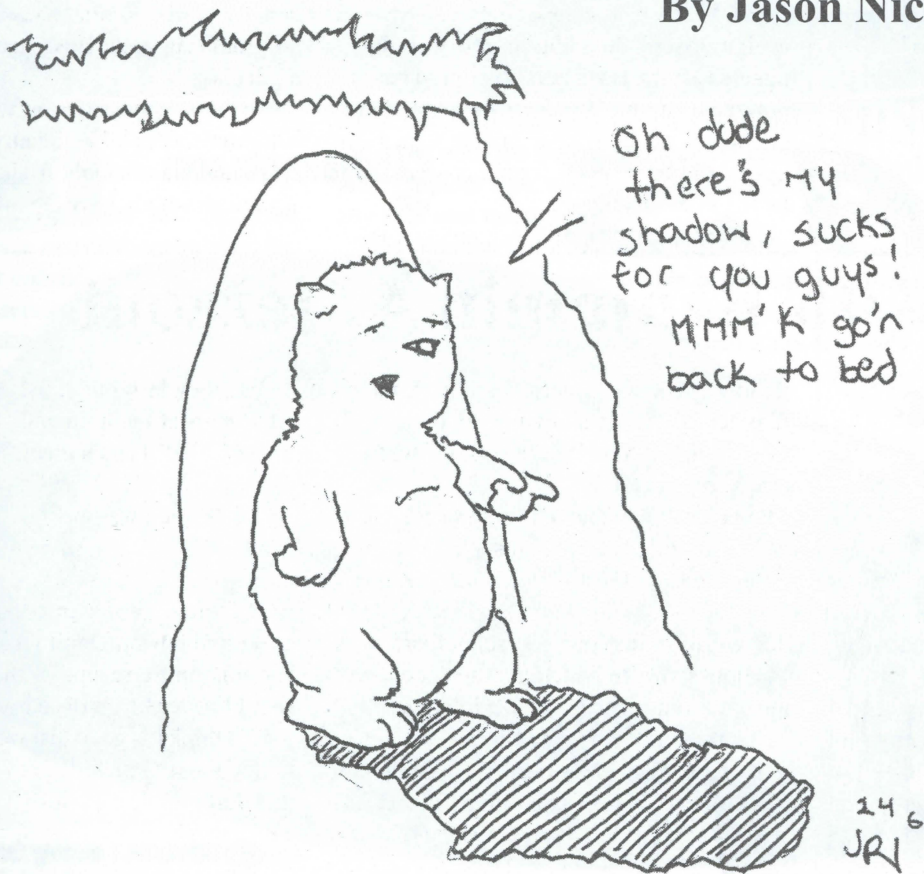 By Jason Nic
Oh dude
there's MY
shadow, sucks
for you guys!
MMM'K go'n
back to bed
14 6